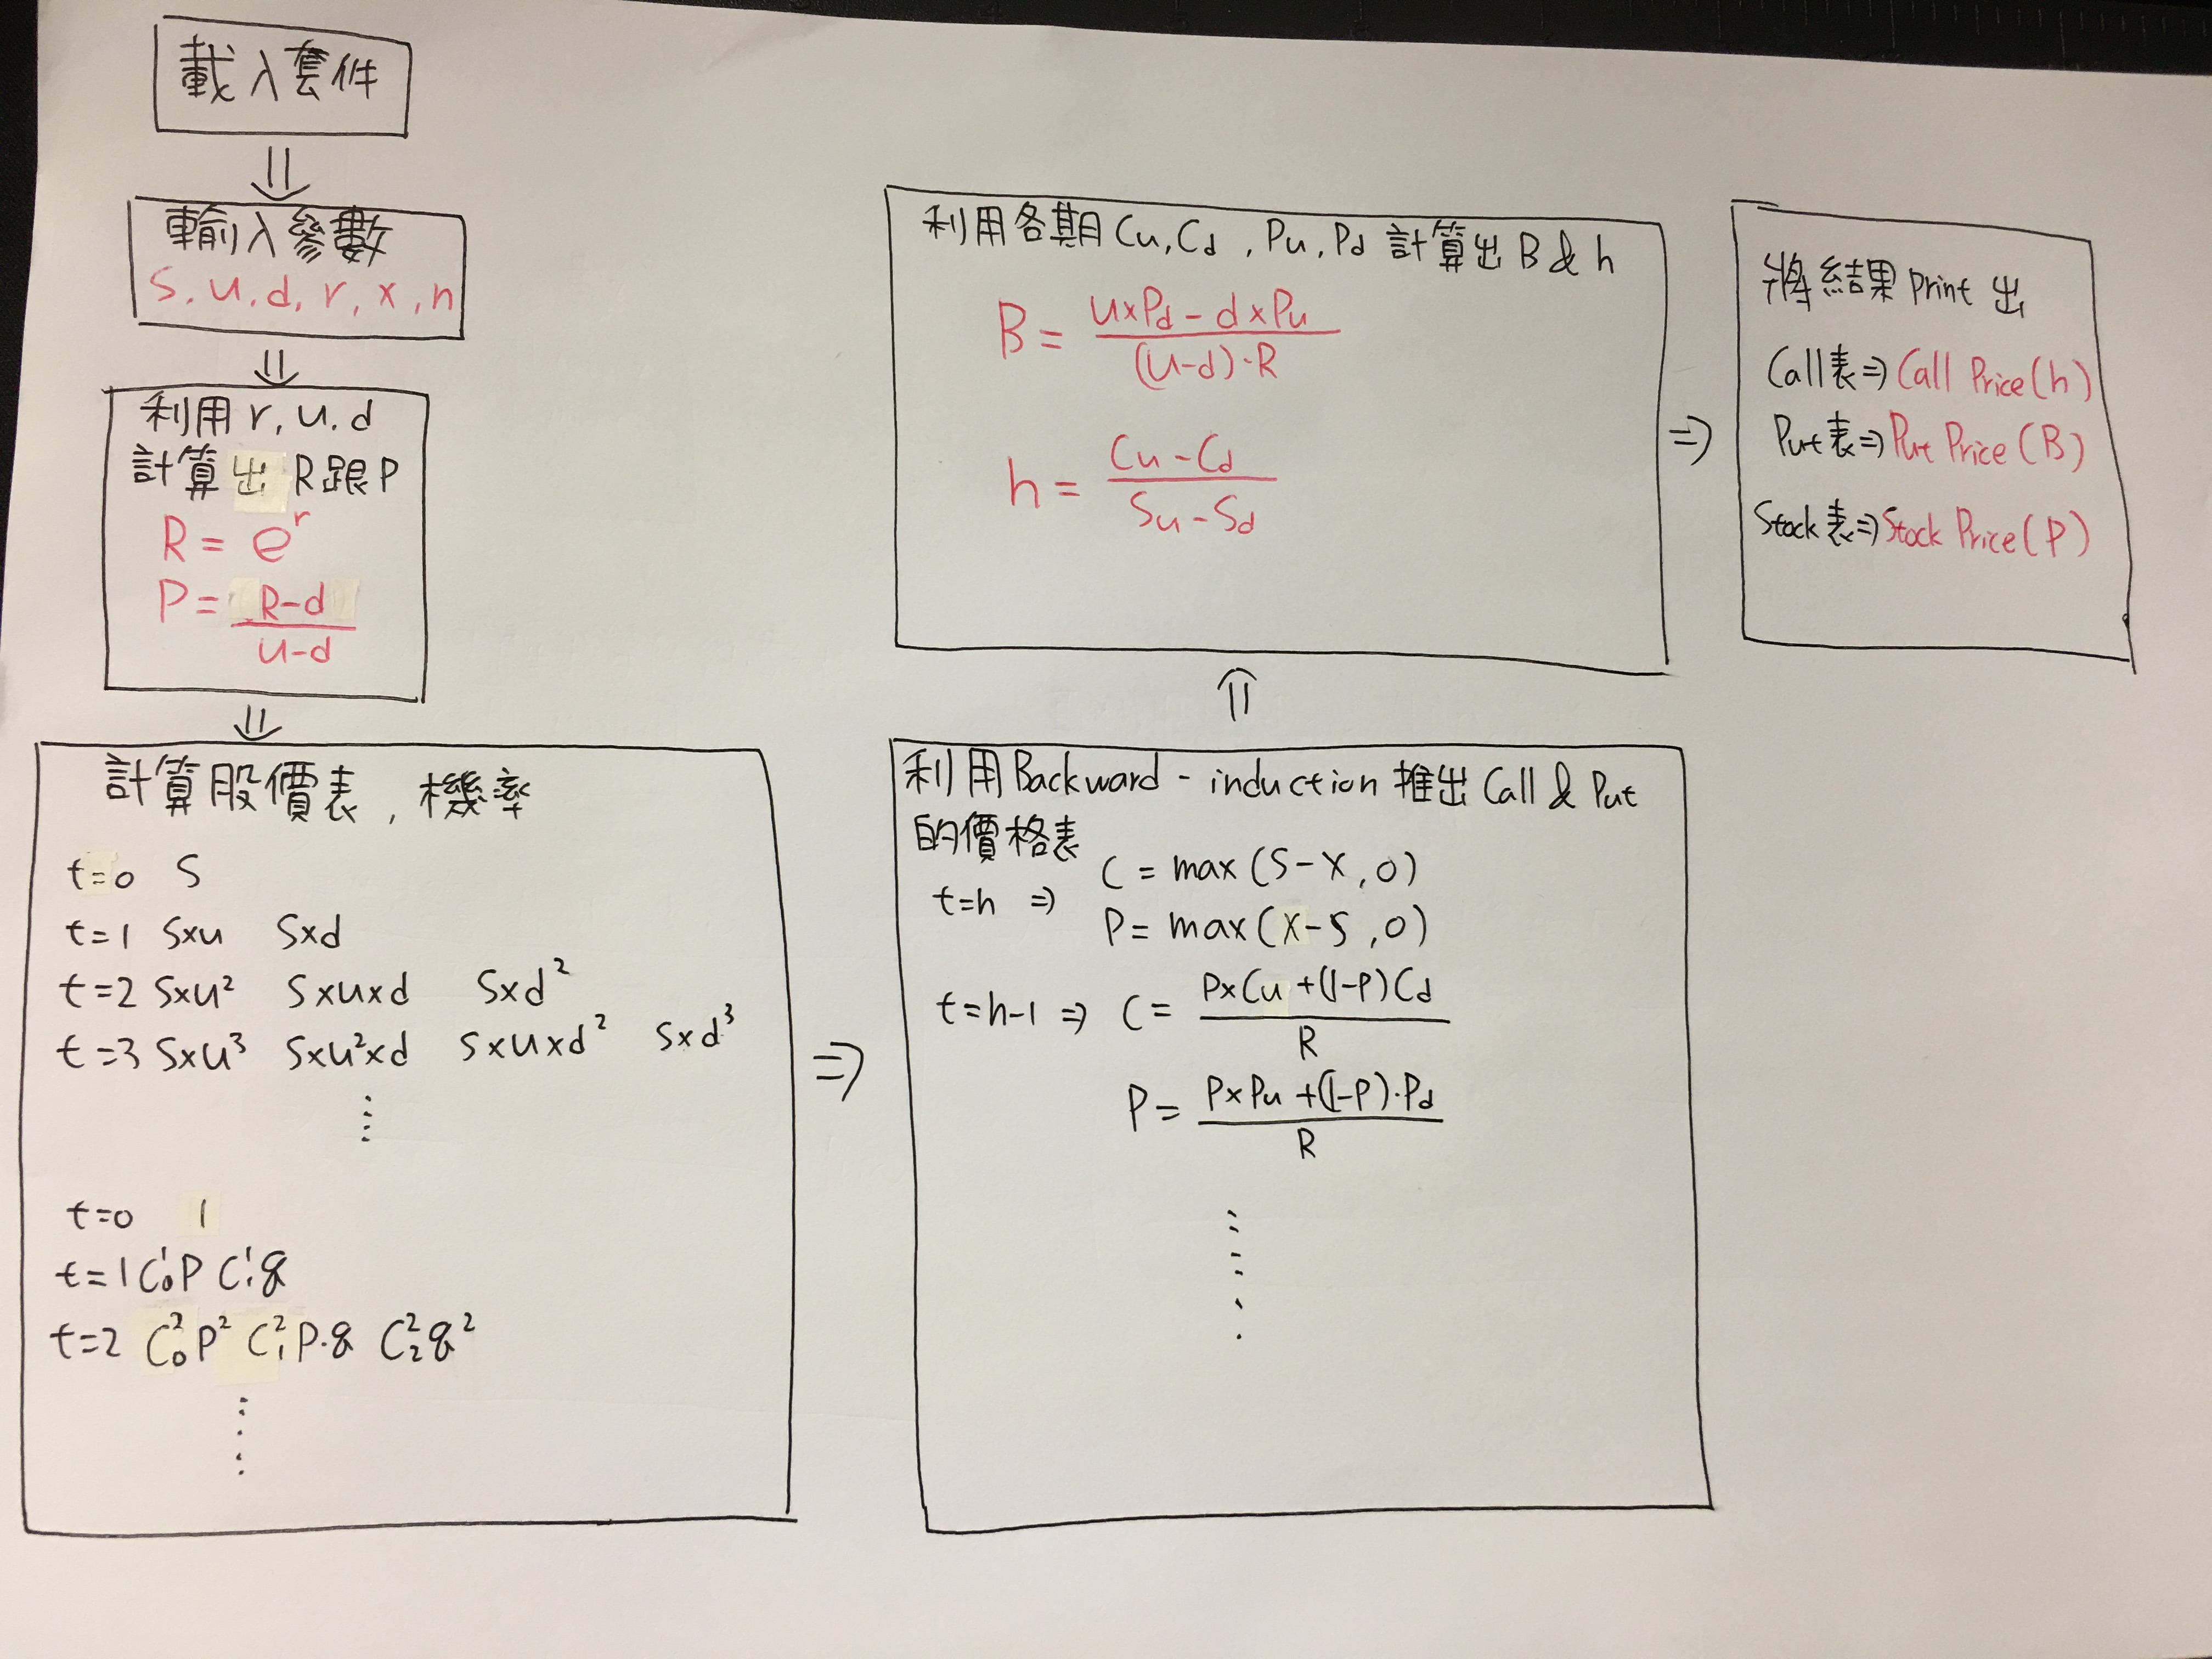 載入套件
輸入參數
S, u, d, r, x, n
利用 r, u, d
計算出 R 跟 P
R = e^r
P = (R-d)/(u-d)
計算股價表, 機率
t=0 S
t=1 S×u S×d
t=2 S×u² S×u×d S×d²
t=3 S×u³ S×u²×d S×u×d² S×d³
⋮
t=0 1
t=1 C¹₀P C¹₁q
t=2 C²₀P² C²₁P·q C²₂q²
⋮
利用 Backward-induction 推出 Call & Put
的價格表
t=n ⇒ C = max(S-X, 0)
P = max(X-S, 0)
t=n-1 ⇒ C = (P×Cu+(1-P)Cd)/R
P = (P×Pu+(1-P)·Pd)/R
⋮
利用各期 Cu, Cd, Pu, Pd 計算出 B & h
B = (u×Pd - d×Pu)/((u-d)·R)
h = (Cu-Cd)/(Su-Sd)
將結果 Print 出
Call表⇒Call Price(h)
Put表⇒Put Price(B)
Stock表⇒Stock Price(P)